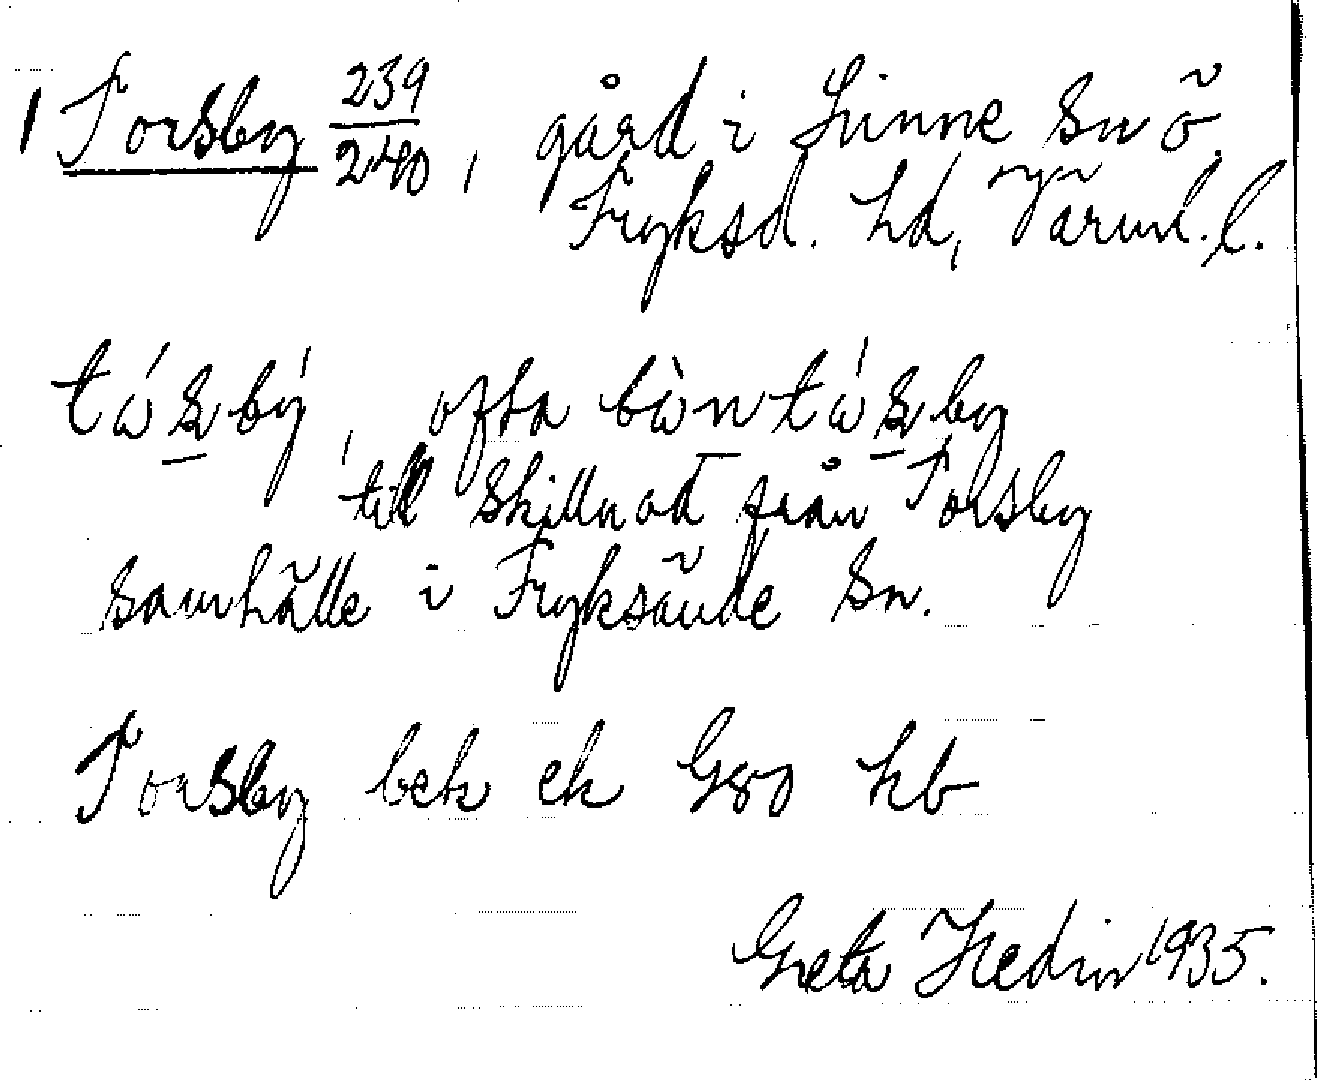 1 Torsby 239/240, gård i Lunne Sn ö.
Fryksd. hd, Värml. l.
tɷ́s̱bý, ofta bɷ̀n tɷ́s̱by
till skillnad från Torsby
samhälle i Fryksände sn.
Torsby bek ek G80 hb
Greta Hedin 1935.